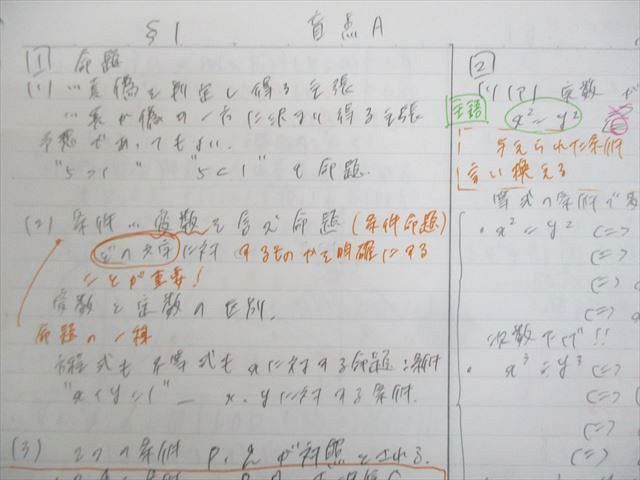 §1 盲点A
1 命題
(1) …真偽を判定し得る主張
…真か偽の一方に決まり得る主張
予想であってもよい.
"5>1" "5<1" も命題.
(2) 条件…変数を含む命題(条件命題)
どの文字に対するものかを明確にする
ことが重要!
変数と定数の区別.
命題の一種
方程式も不等式もxに対する命題:条件
"x+y=1" x.yに対する条件.
(3) 2つの条件 P,q が対照とされる.
2
(1) (ア) 定数
主語 x²=y²
与えられた条件
言い換える
等式の条件で
・x²=y² <=>
<=>
<=>
<=>
次数下げ!!
・x³=y³ <=>
<=>
<=>
<=>